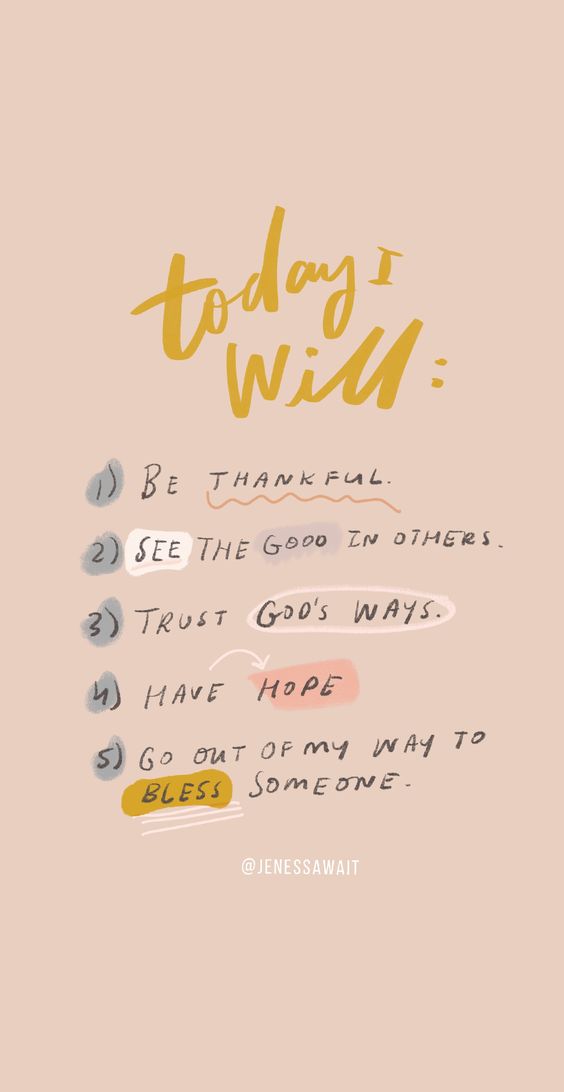 today I
Will:
1) BE THANKFUL.
2) SEE THE GOOD IN OTHERS.
3) TRUST GOD'S WAYS.
4) HAVE HOPE
5) GO OUT OF MY WAY TO
BLESS SOMEONE.
@JENESSAWAIT